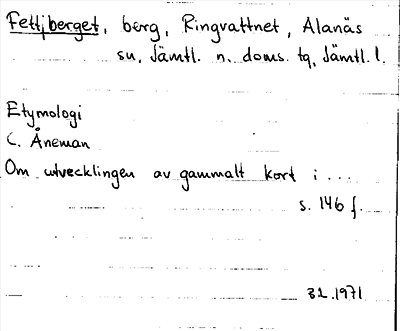 Fettjberget, berg, Ringvattnet, Alanäs
sn, Jämtl. n. doms. tg, Jämtl. l.
Etymologi
C. Åneman
Om utvecklingen av gammalt kort i ...
s. 146 f.
31.1971